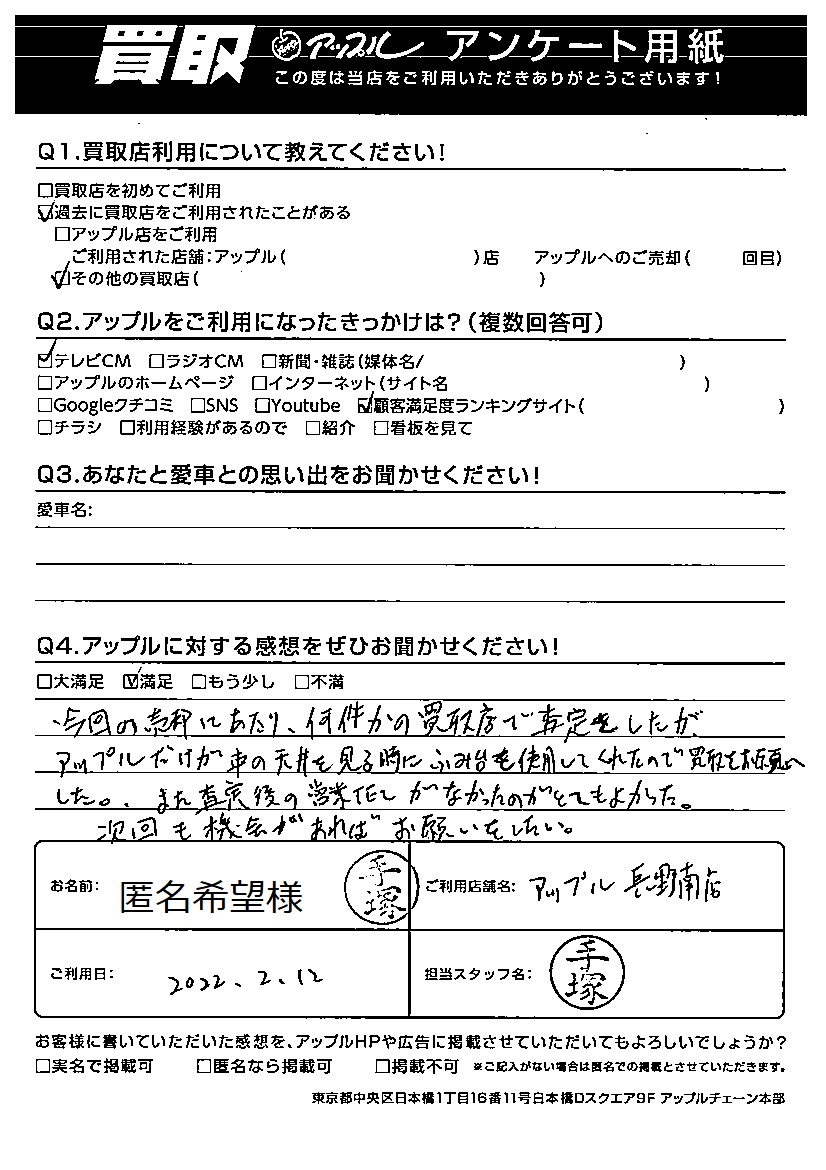 買取 アップル アンケート用紙
この度は当店をご利用いただきありがとうございます！
Q1.買取店利用について教えてください！
□買取店を初めてご利用
☑過去に買取店をご利用されたことがある
□アップル店をご利用
ご利用された店舗：アップル（ ）店 アップルへのご売却（ 回目）
☑その他の買取店（ ）
Q2.アップルをご利用になったきっかけは？（複数回答可）
☑テレビCM □ラジオCM □新聞・雑誌（媒体名/ ）
□アップルのホームページ □インターネット（サイト名 ）
□Googleクチコミ □SNS □Youtube ☑顧客満足度ランキングサイト（ ）
□チラシ □利用経験があるので □紹介 □看板を見て
Q3.あなたと愛車との思い出をお聞かせください！
愛車名：
Q4.アップルに対する感想をぜひお聞かせください！
□大満足 ☑満足 □もう少し □不満
今回の売却にあたり、何件かの買取店で査定をしたが、
アップルだけが車の天井を見る時にふみ台を使用してくれたので買取をお願い
した。また査定後の営業 がなかったのがとてもよかった。
次回も機会があればお願いをしたい。
お名前： 匿名希望様 手塚 ご利用店舗名： アップル 長野南店
ご利用日： 2022.2.12 担当スタッフ名： 手塚
お客様に書いていただいた感想を、アップルHPや広告に掲載させていただいてもよろしいでしょうか？
□実名で掲載可 □匿名なら掲載可 □掲載不可 ※ご記入がない場合は匿名での掲載とさせていただきます。
東京都中央区日本橋1丁目16番11号日本橋Dスクエア9F アップルチェーン本部